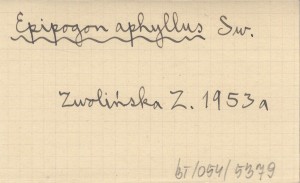 Epipogon aphyllus Sw.
Zwolińska Z. 1953a
BI/054/5379